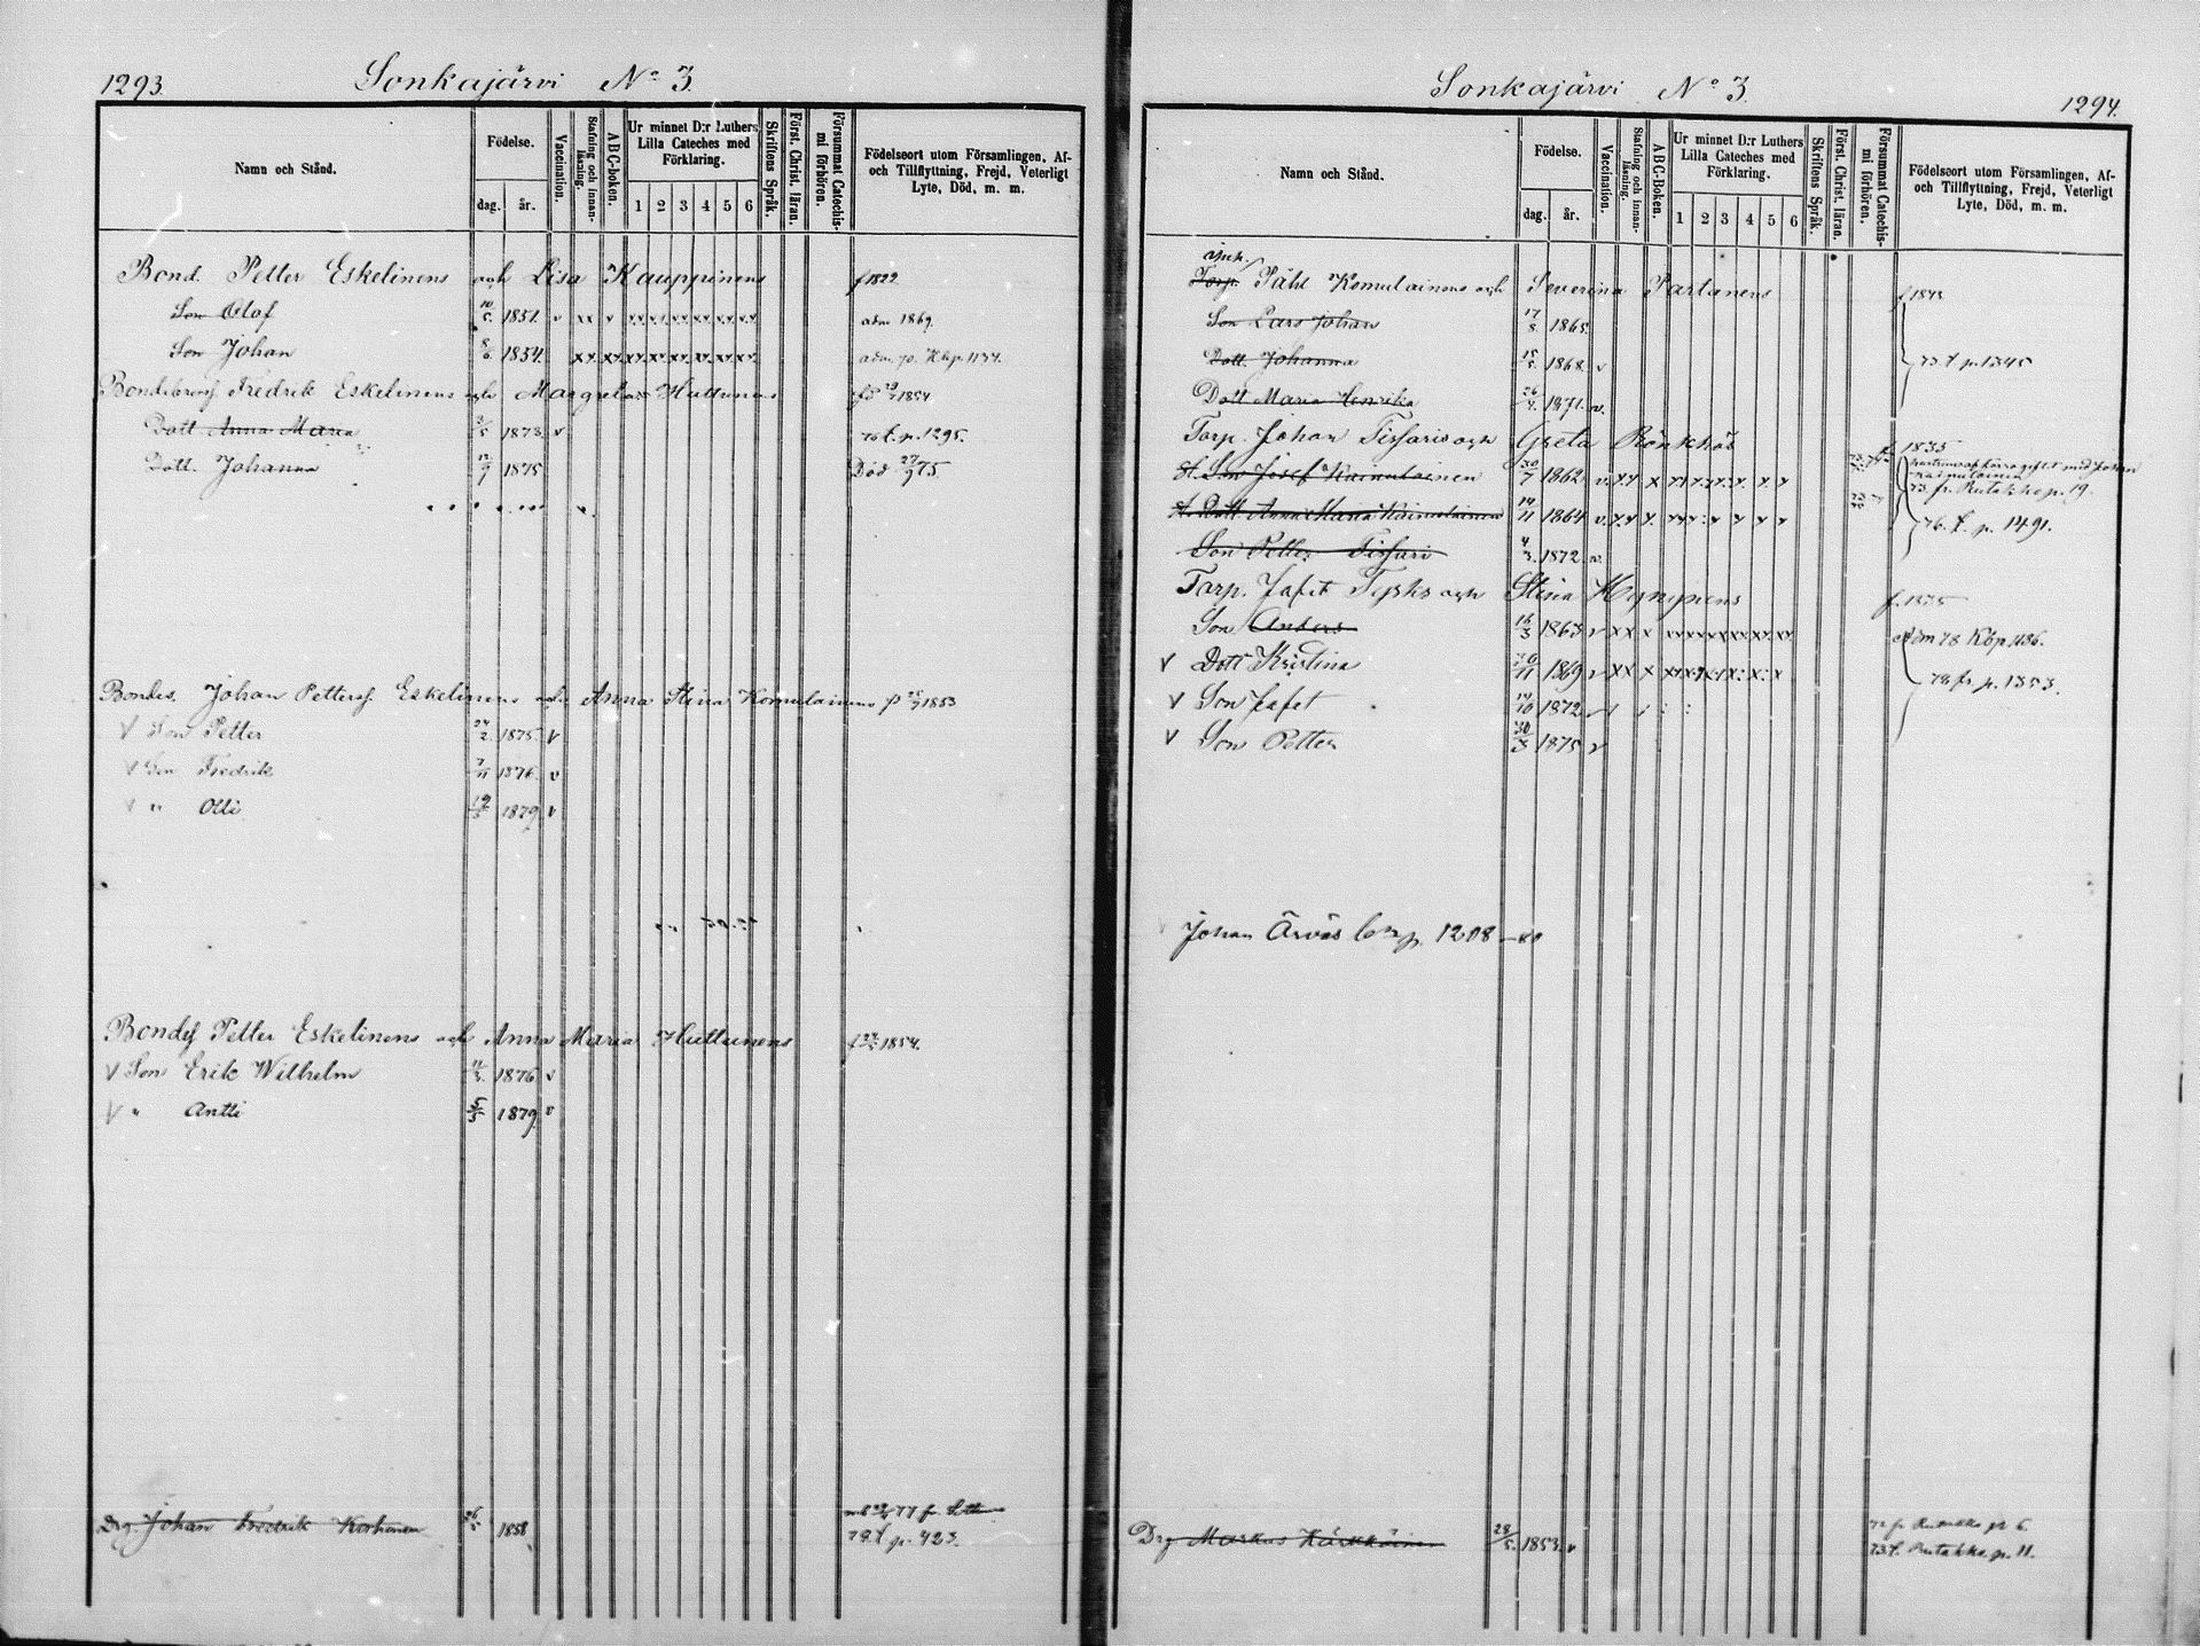 1293.
Sonkajärvi No 3.
Namn och Stånd.
Födelse.
dag.
år.
Vaccination.
Stafning och innan-läsning.
ABC-boken.
Ur minnet D:r Luthers Lilla Cateches med Förklaring.
1 2 3 4 5 6
Skriftens Språk.
Först. Christ. läran.
Försummat Catechis-mi förhören.
Födelseort utom Församlingen, Af-
och Tillflyttning, Frejd, Veterligt
Lyte, Död, m. m.
Bond. Petter Eskelinens och Lisa Kauppinens f 1822
Son Olof 1851. v adm 1869.
Son Johan 8/6 1854. adm. 70.
Fredrik Eskelinens och Margreta Huttunens 1854
Dott Anna Maria 3/5 1873 v t. p. 1295.
Dött. Johanna 1875 Död 27/9 75.
Bondes. Johan Petterss. Eskelinens och Anna Stina Komulainens 1853
V Son Petter 24/2 1875. v
V Son Fredrik 7/11 1876. v
V " Olli 1879 v
Bondes Petter Eskelinens och Anna Maria Huttunens 1854.
V Son Erik Wilhelm 1876 v
V " Antti 5/5 1879. v
Drg. Johan Fredrik Korhonen 1858 77 fr.
79 t p. 423.
Sonkajärvi No 3.
1294.
Namn och Stånd.
Födelse.
dag.
år.
Vaccination.
Stafning och innan-läsning.
ABC-Boken.
Ur minnet D:r Luthers Lilla Cateches med Förklaring.
1 2 3 4 5 6
Skriftens Språk.
Först. Christ. läran.
Försummat Catechis-mi förhören.
Födelseort utom Församlingen, Af-
och Tillflyttning, Frejd, Veterligt
Lyte, Död, m. m.
Torp. Påhl Komulainens och Severina Partanens
Son Lars Johan 17/8 1865.
Dott. Johanna 1868. v 73 t p. 1345
Dott Maria Henrika 26/4 1871. v.
Torp. Johan Tissaris och Greta Rönkkös f. 1835
St. Son Josef Kainulainen 30/7 1862 v. 73. fr. Rutakko p. 19.
St. Dott Anna Maria Kainulainen 14/11 1864 v. 76. t. p. 1491.
Son Petter Tissari 4/3 1872 v.
Torp. Jafet Tysks och Stina Hynynens
Son Anders 16/3 1863 v Adm 78
V Dott Kristina 1869 v 78 fr p. 1353.
V Son Jafet 14/10 1872
V Son Petter 1875 v
Johan Ärväs 1208 – 80
Drg Markus Kärkkäinen 28/5. 1853. v 72 fr Rutakko p. 6.
73 t. Rutakko p. 11.